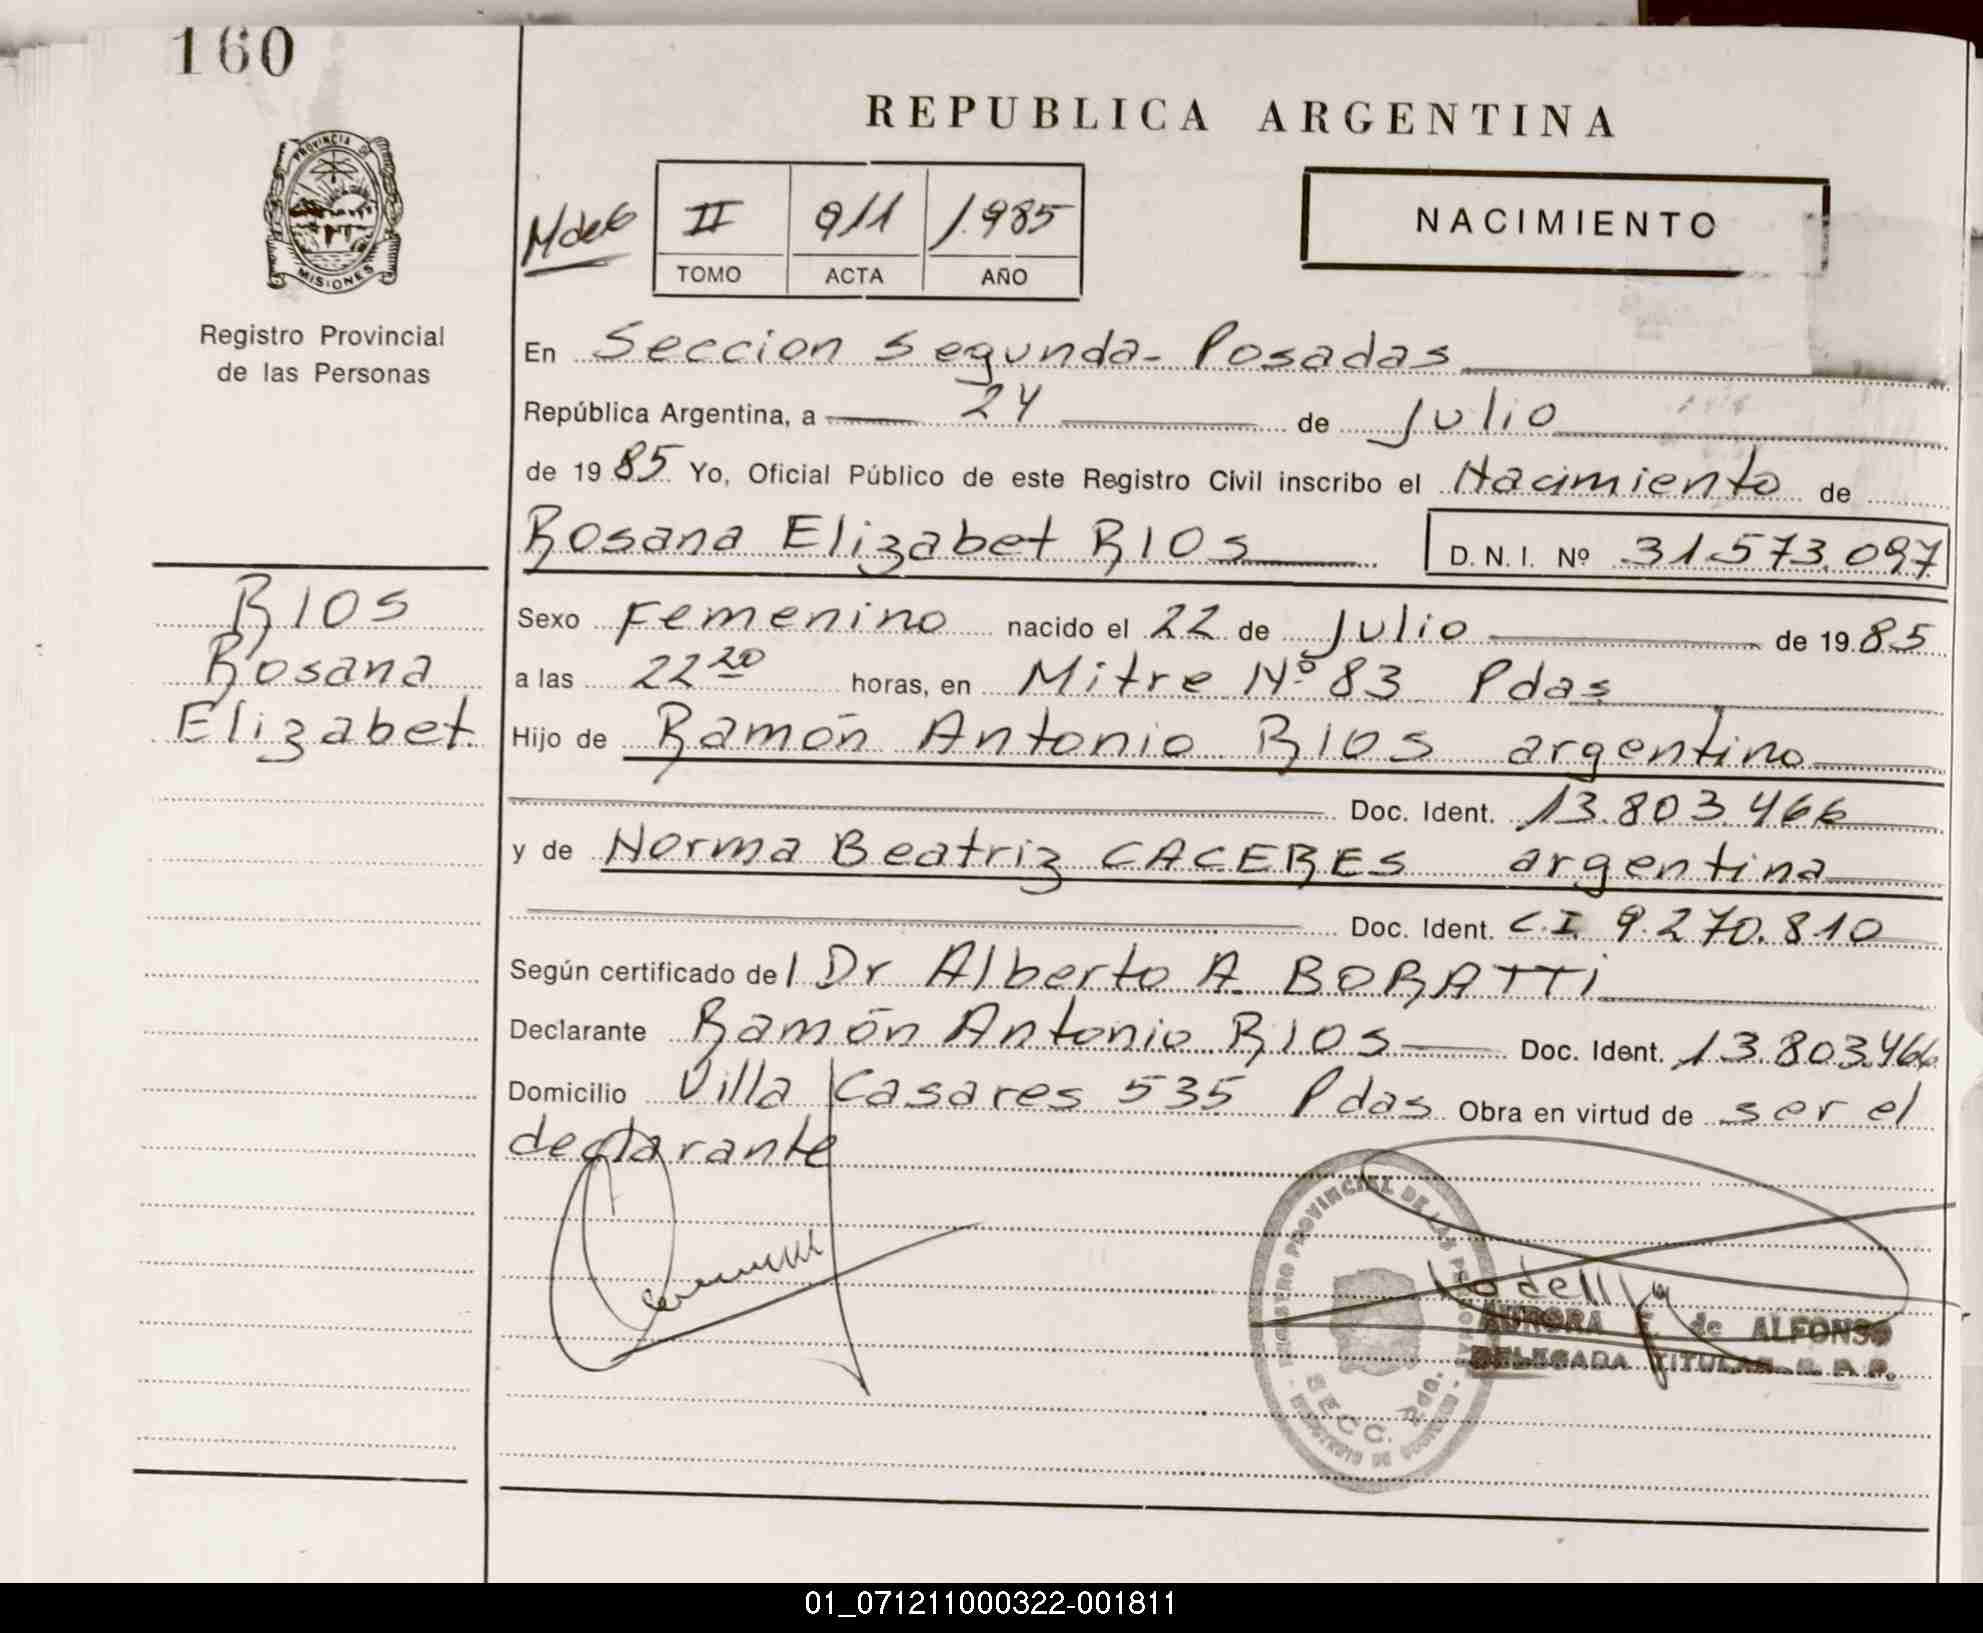 160
REPUBLICA ARGENTINA
PROVINCIA DE
MISIONES
Registro Provincial
de las Personas
II 911 1.985
TOMO ACTA AÑO
NACIMIENTO
En Seccion Segunda - Posadas
República Argentina, a 24 de Julio
de 19 85 Yo, Oficial Público de este Registro Civil inscribo el Nacimiento de
Rosana Elizabet RIOS D. N. I. Nº 31.573.097
RIOS
Rosana
Elizabet.
Sexo Femenino nacido el 22 de Julio de 19 85
a las 22 20 horas, en Mitre Nº 83 Pdas
Hijo de Ramón Antonio RIOS argentino
Doc. Ident. 13.803.466
y de Norma Beatriz CACERES argentina
Doc. Ident. C.I. 9.270.810
Según certificado del Dr Alberto A. BORATTI
Declarante Ramón Antonio RIOS Doc. Ident. 13.803.466
Domicilio Villa Casares 535 Pdas Obra en virtud de ser el
declarante
REGISTRO PROVINCIAL DE LAS PERSONAS
SECC. 2da.
AURORA de ALFONSO
DELEGADA TITULAR
01_071211000322-001811